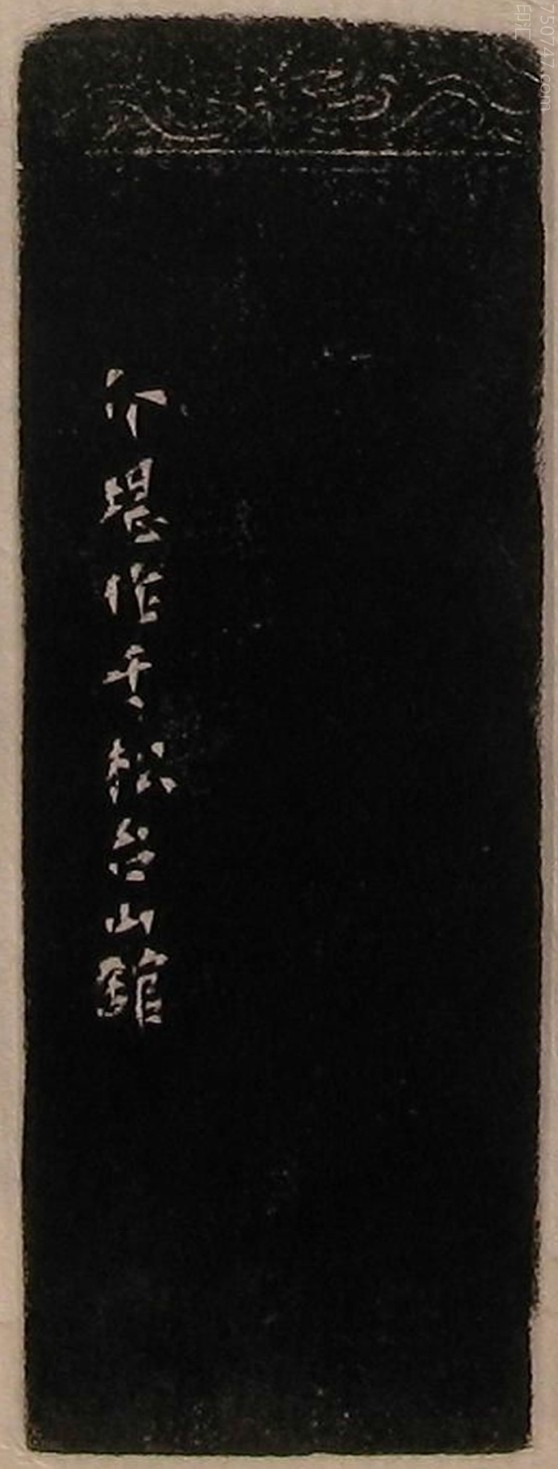 介堪作于松台山館